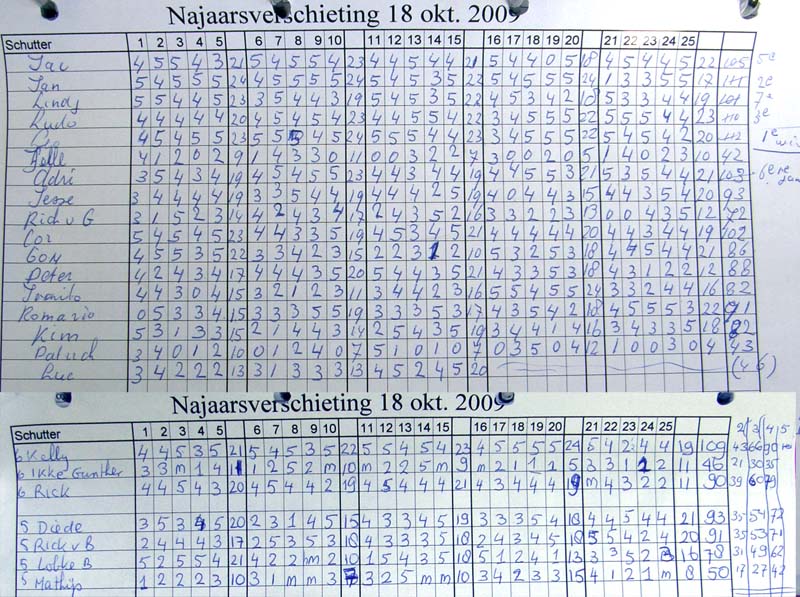 Najaarsverschieting 18 okt. 2009
Schutter 1 2 3 4 5 6 7 8 9 10 11 12 13 14 15 16 17 18 19 20 21 22 23 24 25
Jac 4 5 5 4 3 21 5 4 5 5 4 23 4 4 5 4 4 21 5 4 4 0 5 18 4 5 4 4 5 22 105 5e
Jan 5 4 5 5 5 24 4 5 5 5 5 24 5 4 5 3 5 22 5 4 5 5 5 24 1 3 3 5 5 17 111 2e
Lindy 5 5 4 4 5 23 3 5 4 4 3 19 5 4 5 3 5 22 4 5 3 4 2 18 5 3 3 4 4 19 101 7e
Ludo 4 4 4 4 4 20 4 5 4 5 4 23 4 4 5 5 4 22 3 4 5 5 5 22 5 5 5 4 4 23 110 3e
4 5 4 5 5 23 5 5 5 4 5 24 5 5 5 4 4 23 3 4 5 5 5 22 5 4 5 4 2 20 112 1e
Jelle 4 1 2 0 2 9 1 4 3 3 0 11 0 0 3 2 2 7 3 0 0 2 0 5 1 4 0 2 3 10 42
Adri 3 5 4 3 4 19 4 5 4 5 5 23 4 4 3 4 4 19 4 4 5 5 3 21 5 3 5 4 4 21 103 6e
Jesse 3 4 4 4 4 19 3 3 5 4 4 19 4 4 4 2 5 19 4 0 4 4 3 15 4 4 3 5 4 20 93
Rick v G 3 1 5 2 3 14 4 2 4 3 4 17 2 4 3 5 2 16 3 3 2 2 3 13 0 0 4 3 5 12 72
Cor 5 4 5 4 5 23 4 4 3 3 5 19 4 5 3 4 5 21 4 4 4 4 4 20 4 4 3 4 4 19 102
Gon 4 5 5 3 5 22 3 3 4 2 3 15 2 2 3 1 2 10 5 3 2 5 3 18 4 4 5 4 4 21 86
Peter 4 2 4 3 4 17 4 4 4 3 5 20 5 4 4 3 5 21 4 3 3 5 3 18 4 3 1 2 2 12 88
4 4 3 0 4 15 3 2 1 2 3 11 3 4 4 2 3 16 5 5 4 5 5 24 3 3 2 4 4 16 82
Romario 0 5 3 3 4 15 3 3 3 5 5 19 3 3 3 5 3 17 4 3 5 4 2 18 4 5 5 5 3 22 91
Kim 5 3 1 3 3 15 2 1 4 4 3 14 2 5 4 3 5 19 3 4 4 1 4 16 3 4 3 3 5 18 82
3 4 0 1 2 10 0 1 2 4 0 7 5 1 0 1 0 7 0 3 5 0 4 12 1 0 0 3 0 4 43
Luc 3 4 2 2 2 13 3 1 3 3 3 13 4 5 2 4 5 20 (46)
Najaarsverschieting 18 okt. 2009
Schutter 1 2 3 4 5 6 7 8 9 10 11 12 13 14 15 16 17 18 19 20 21 22 23 24 25
6 Kelly 4 4 5 3 5 21 5 4 5 3 5 22 5 5 4 5 4 23 4 5 5 5 5 24 5 4 2 4 4 19 109 43 66 90
6 Ikke Gunther 3 3 m 1 4 11 1 2 5 2 m 10 m 2 2 5 m 9 m 2 1 1 1 5 3 3 1 2 2 11 46 21 30 35
6 Rick 4 4 5 4 3 20 4 5 4 4 2 19 4 5 4 4 4 21 4 3 4 4 4 19 m 4 3 2 2 11 90 39 60 79
5 Diede 3 5 3 4 5 20 2 3 1 4 5 15 4 3 3 4 5 19 3 3 3 5 4 18 4 4 5 4 4 21 93 35 54 72
5 Rick v B 2 4 4 4 3 17 2 5 3 5 3 18 4 3 3 4 4 18 2 4 3 4 5 18 5 5 4 2 4 20 91 35 53 71
5 Lotke B 5 2 5 5 4 21 4 2 2 m 2 10 1 5 4 3 5 18 5 1 2 4 1 13 3 3 5 2 3 16 78 31 49 62
5 Mathijs 1 2 2 2 3 10 3 1 m m 3 7 3 2 5 m m 10 3 4 2 3 3 15 4 1 2 1 m 8 50 17 27 42